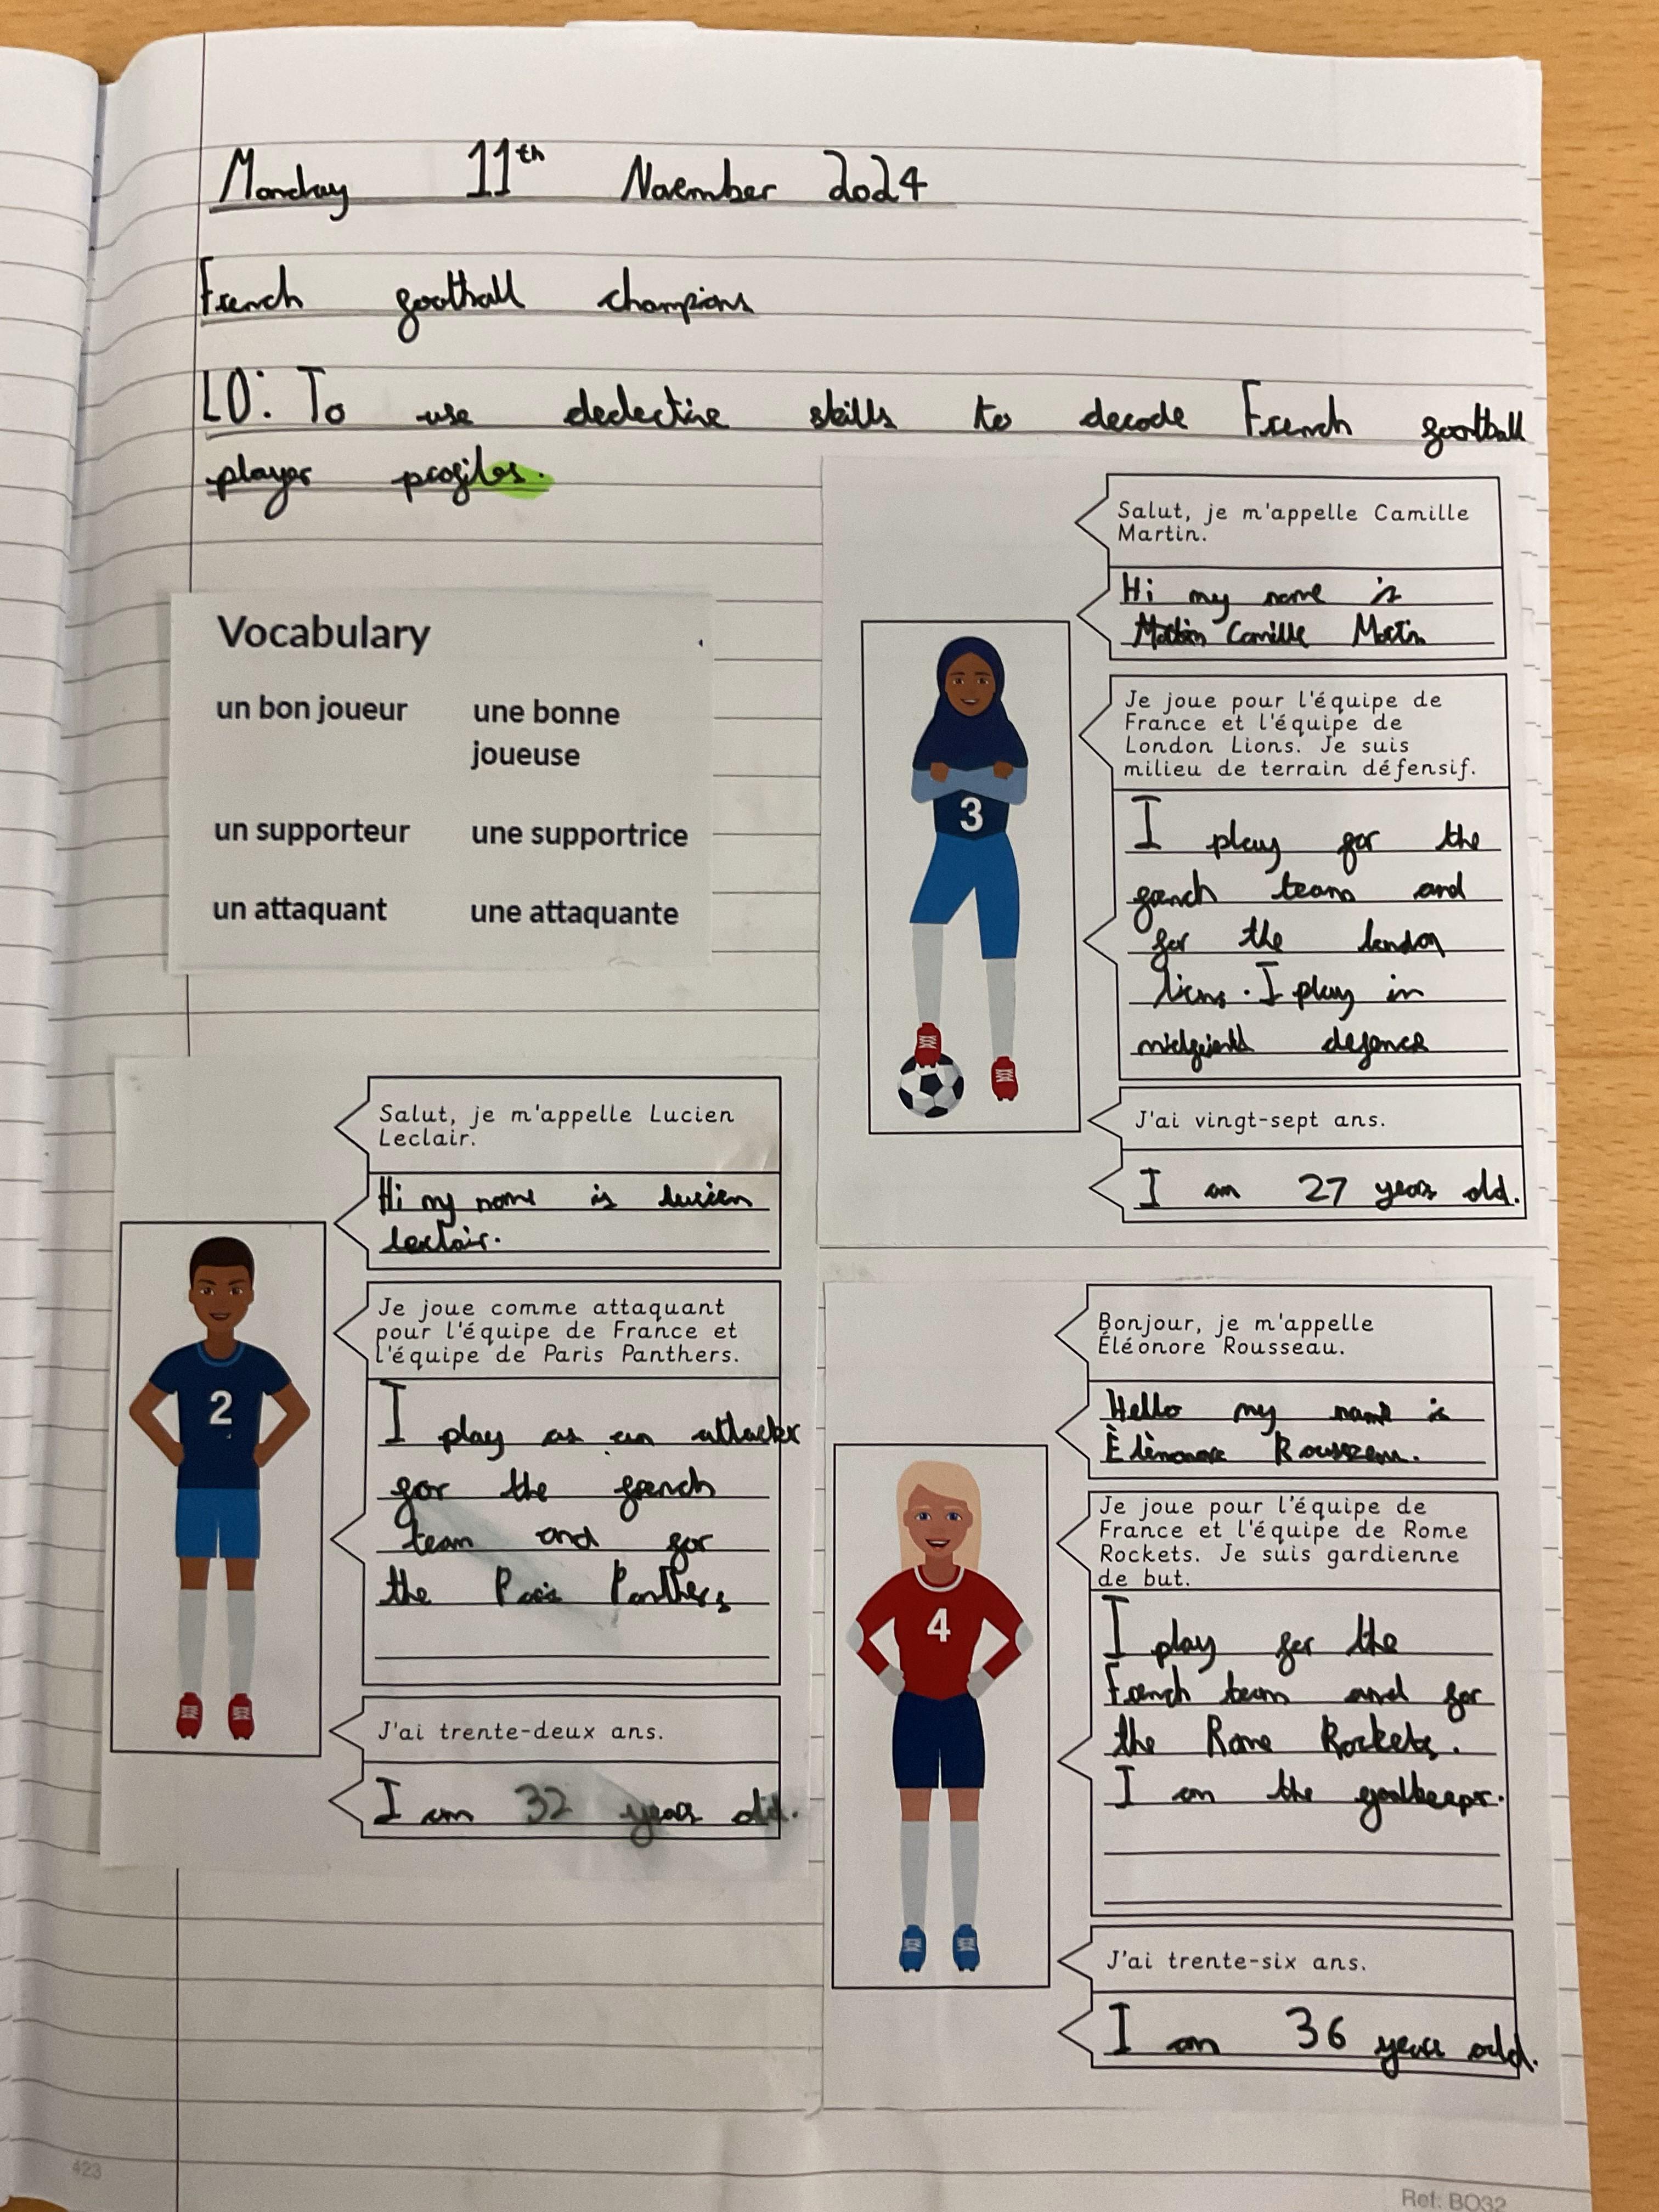 Monday 11th November 2024
French football champions
LO: To use dedective skills to decode French football
player profiles.
Vocabulary
un bon joueur
une bonne
joueuse
un supporteur
une supportrice
un attaquant
une attaquante
Salut, je m'appelle Camille
Martin.
Hi my name is
Camille Martin
Je joue pour l'équipe de
France et l'équipe de
London Lions. Je suis
milieu de terrain défensif.
I play for the
french team and
for the london
lions. I play in
midfield defence
J'ai vingt-sept ans.
I am 27 years old.
Salut, je m'appelle Lucien
Leclair.
Hi my name is lucien
leclair.
Je joue comme attaquant
pour l'équipe de France et
l'équipe de Paris Panthers.
I play as an attacker
for the french
team and for
the Paris Panthers
J'ai trente-deux ans.
I am 32 years old.
Bonjour, je m'appelle
Éléonore Rousseau.
Hello my name is
Rousseau.
Je joue pour l'équipe de
France et l'équipe de Rome
Rockets. Je suis gardienne
de but.
I play for the
French team and for
the Rome Rockets.
I am the goalkeeper.
J'ai trente-six ans.
I am 36 years old.
2
3
4
423
Ref: BO32